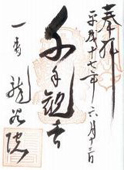 奉拝
平成十七年六月十二日
千手観音
一番
龍泉院